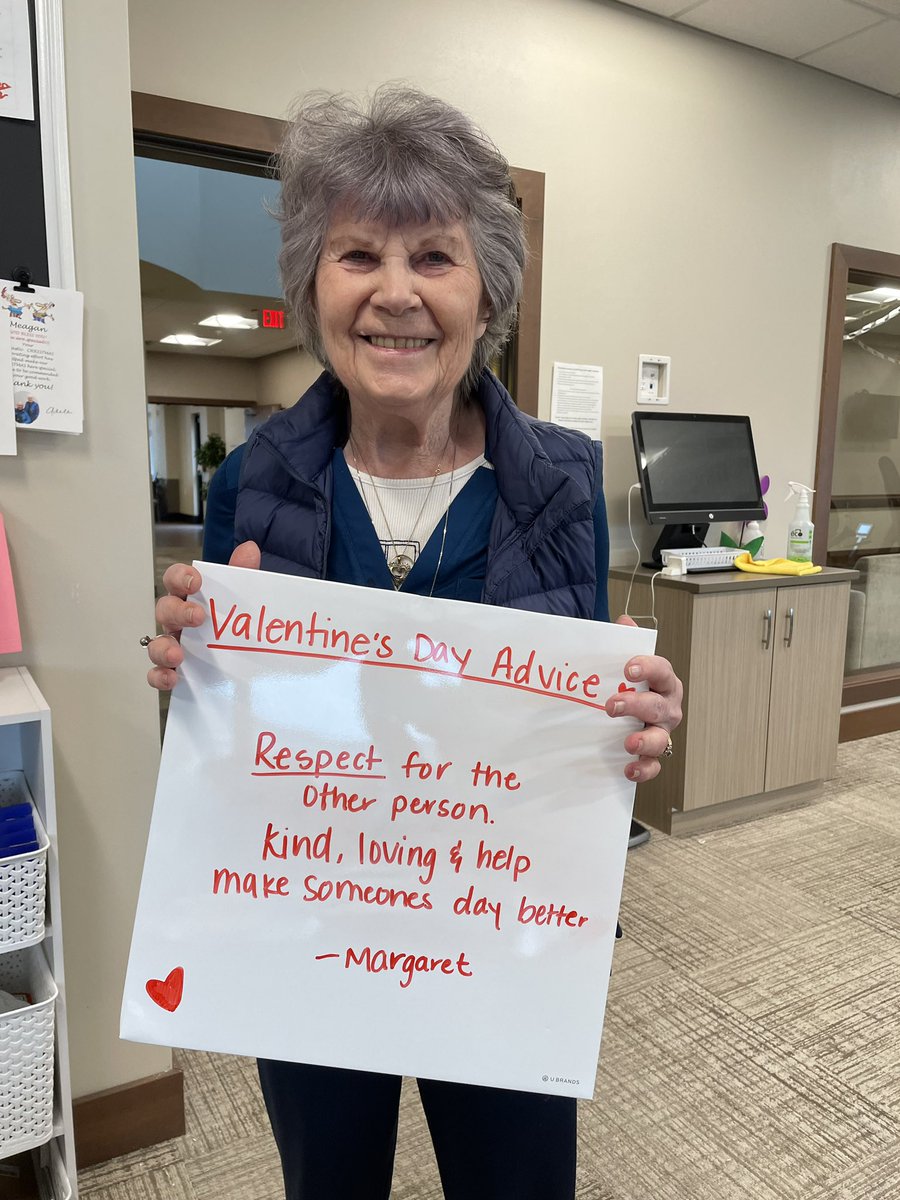 EXIT
Meagan
CHRISTMAS
Valentine's Day Advice
Respect for the
other person.
kind, loving & help
make someones day better
—Margaret
U BRANDS
eco